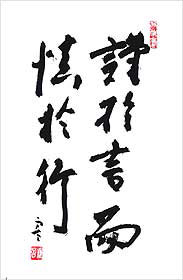 謹於言而
慎於行